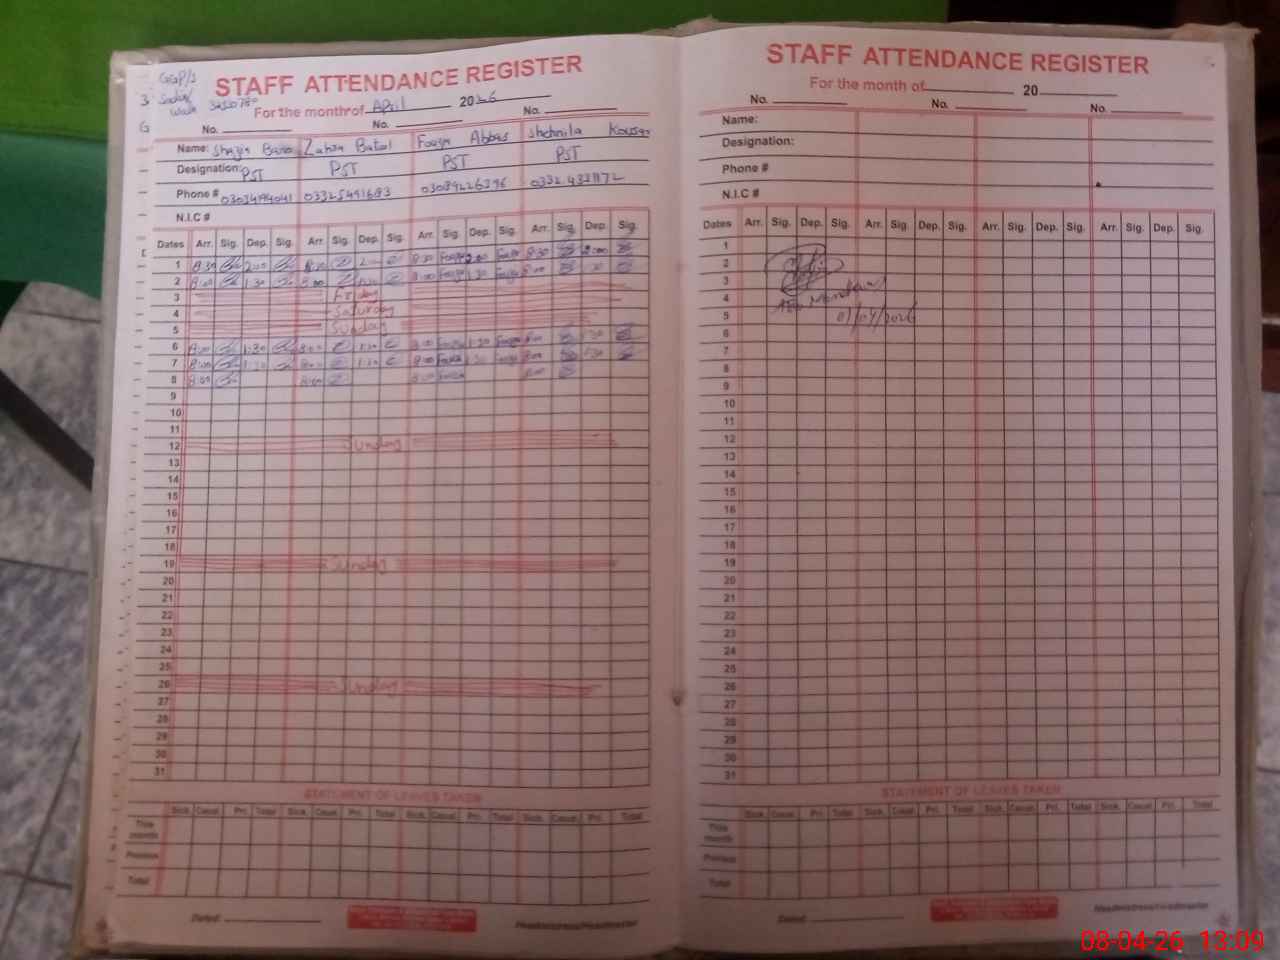 GGP/S
STAFF ATTENDANCE REGISTER
For the month of April 2026
No. No. No.
Name: Shazia Bano Zahra Batol Fouzia Abbas Shehnila Kousar
Designation: PST PST PST PST
Phone #
N.I.C #
Dates Arr. Sig. Dep. Sig. Arr. Sig. Dep. Sig. Arr. Sig. Dep. Sig. Arr. Sig. Dep. Sig.
1 8:30 2:00 8:30 2:00 8:30 Fouzia 2:00 Fouzia 8:30 2:00
2 8:00 1:30 8:00 1:30 8:00 Fouzia 1:30 Fouzia 8:00
3 Friday
4 Saturday
5 Sunday
6 8:00 1:30 8:00 1:30 8:00 Fouzia 1:30 Fouzia 8:00 1:30
7 8:00 1:30 8:00 1:30 8:00 Fouzia 1:30 Fouzia 8:00 1:30
8 8:00 8:00 8:00 Fouzia 8:00
9
10
11
12 Sunday
13
14
15
16
17
18
19 Sunday
20
21
22
23
24
25
26 Sunday
27
28
29
30
31
STATEMENT OF LEAVES TAKEN
Sick. Casul. Pri. Total Sick. Casul. Pri. Total Sick. Casul. Pri. Total Sick. Casul. Pri. Total
This month
Previous
Total
Dated: Headmistress/Headmaster
STAFF ATTENDANCE REGISTER
For the month of 20
No. No. No.
Name:
Designation:
Phone #
N.I.C #
Dates Arr. Sig. Dep. Sig. Arr. Sig. Dep. Sig. Arr. Sig. Dep. Sig. Arr. Sig. Dep. Sig.
1
2
3
4
5 01/04/2026
6
7
8
9
10
11
12
13
14
15
16
17
18
19
20
21
22
23
24
25
26
27
28
29
30
31
STATEMENT OF LEAVES TAKEN
Sick. Casul. Pri. Total Sick. Casul. Pri. Total Sick. Casul. Pri. Total Sick. Casul. Pri. Total
This month
Previous
Total
Dated: Headmistress/Headmaster
08-04-26 13:09